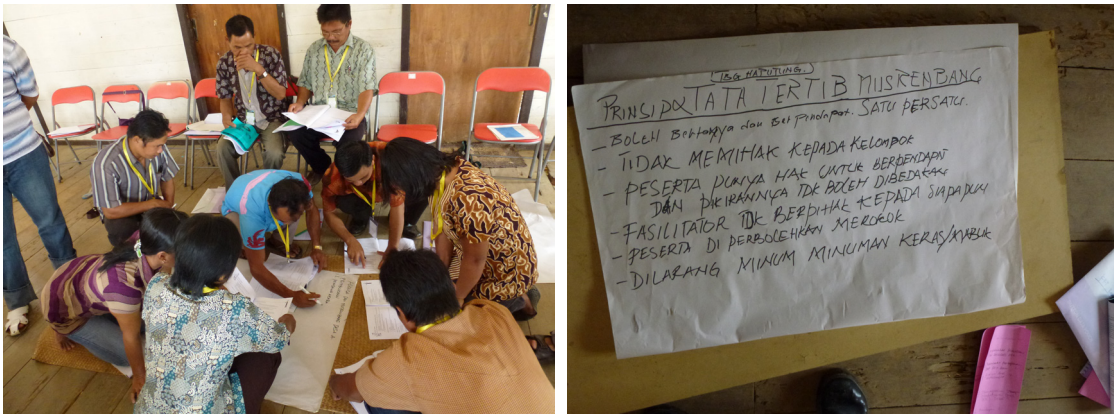 PRINSIP TATA TERTIB MUSRENBANG
- BOLEH Bertanya dan Berpendapat SATU PERSATU.
- TIDAK MEMIHAK KEPADA KELOMPOK
- PESERTA PUNYA HAK UNTUK BERPENDAPAT
DAN PIKIRANNYA TDK BOLEH DIBEDAKAN
- FASILITATOR TDK BERPIHAK KEPADA SIAPAPUN
- PESERTA DI PERBOLEHKAN MEROKOK
- DILARANG MINUM MINUMAN KERAS/MABUK